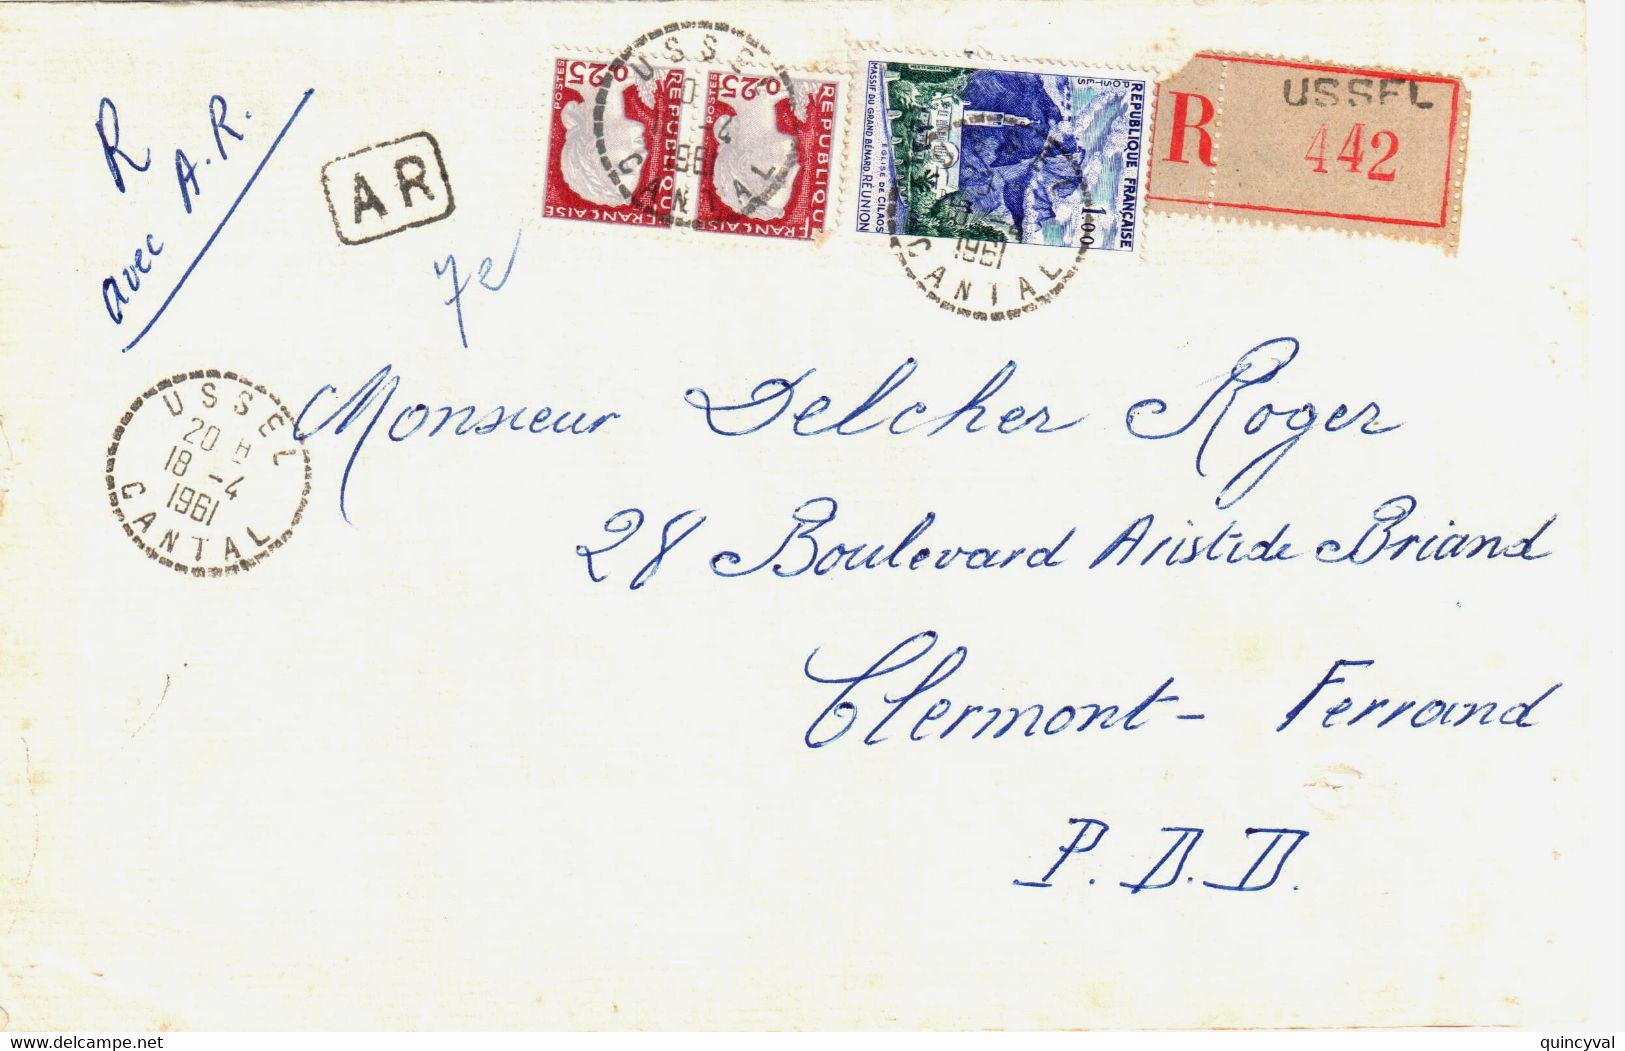 R
avec A.R.
AR
7e
0,25
POSTES
REPUBLIQUE
FRANÇAISE
0,25
POSTES
REPUBLIQUE
FRANÇAISE
USSEL
-4
1961
CANTAL
REPUBLIQUE FRANÇAISE
POSTES
1,00
EGLISE DE CILAOS
MASSIF DU GRAND BÉNARD RÉUNION
1961
CANTAL
R
USSEL
442
USSEL
20 H
18 -4
1961
CANTAL
Monsieur Delcher Roger
28 Boulevard Aristide Briand
Clermont-Ferrand
P.D.D.
delcampe.net
quincyval